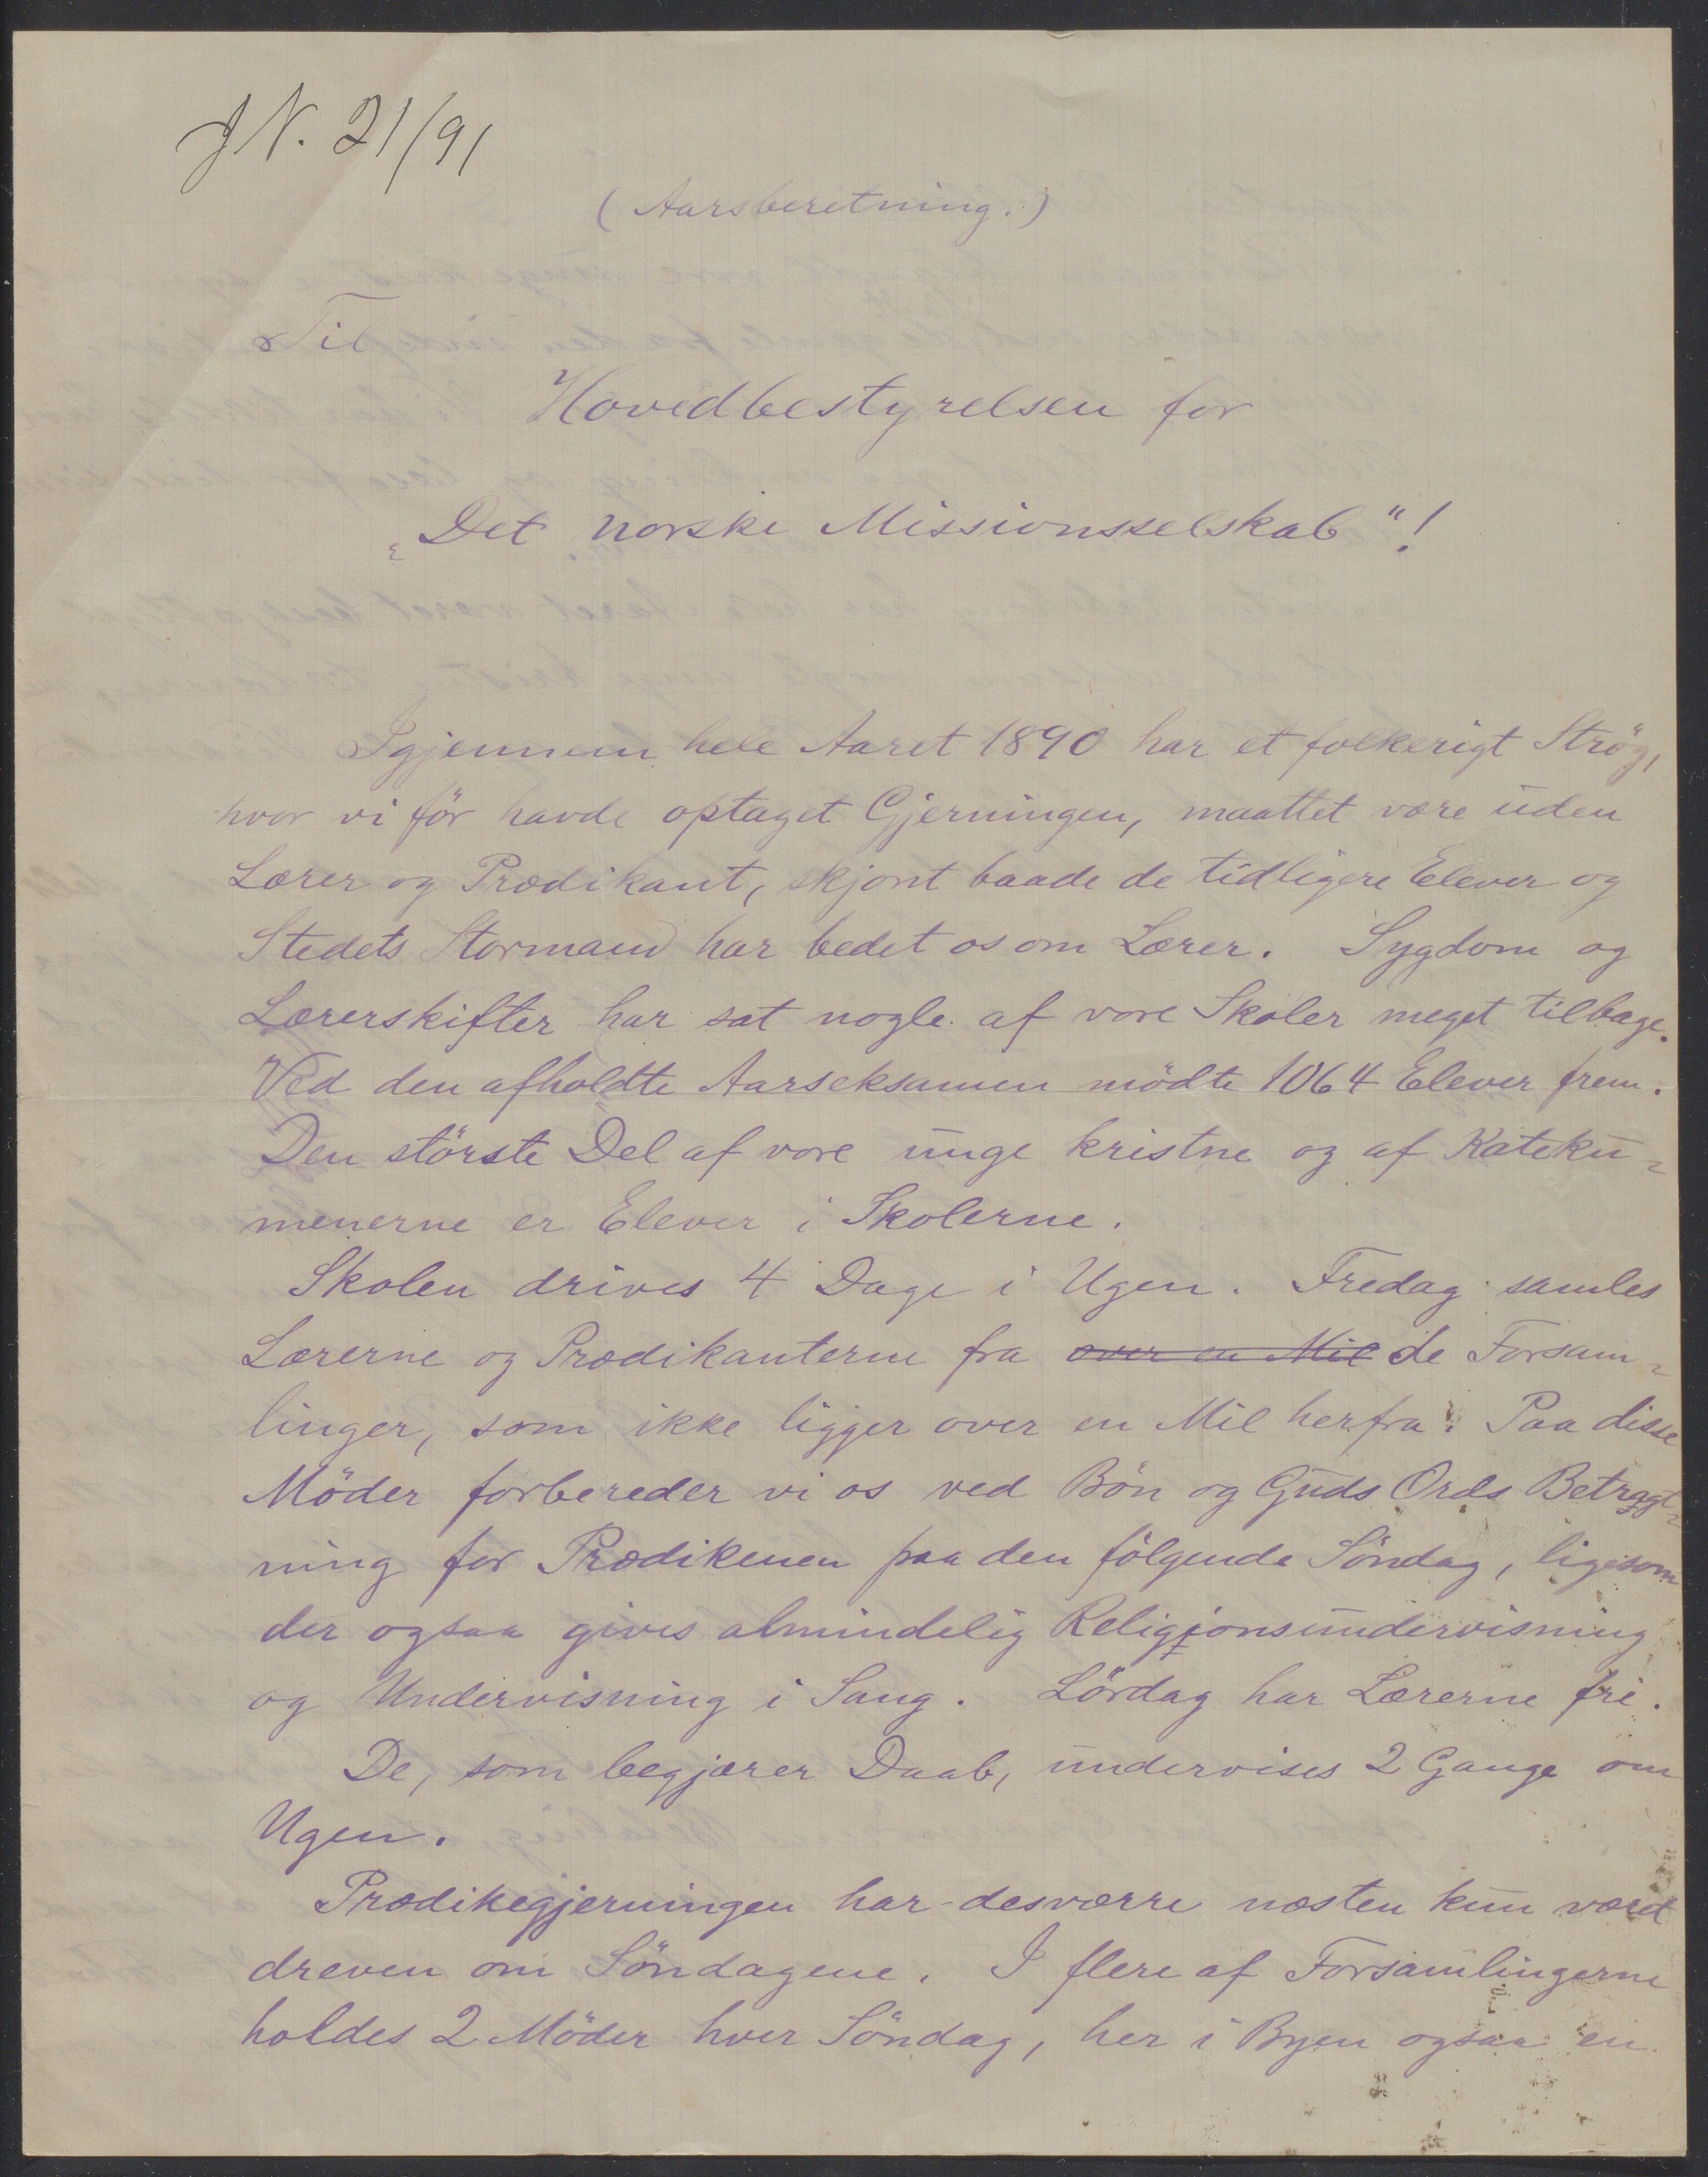 J N. 21/91
(Aarsberetning.)
Til
Hovedbestyrelsen for
„Det norske Missionsselskab"!
Igjennem hele Aaret 1890 har et folkerigt Strög,
hvor vi för havde optaget Gjerningen, maattet være uden
Lærer og Prædikant, skjønt baade de tidligere Elever og
Stedets Stormand har bedet os om Lærer. Sygdom og
Lærerskifter har sat nogle af vore Skoler meget tilbage.
Ved den afholdte Aarseksamen mödte 1064 Elever frem.
Den störste Del af vore unge kristne og af Kateku-
menerne er Elever i Skolerne.
Skolen drives 4 Dage i Ugen. Fredag samles
Lærerne og Prædikanterne fra over en Mil de Forsam-
linger, som ikke ligger over en Mil herfra. Paa disse
Möder forbereder vi os ved Bön og Guds Ords Betragt-
ning for Prædikenen paa den fölgende Söndag, ligesom
der ogsaa gives almindelig Religionsundervisning
og Undervisning i Sang. Lördag har Lærerne fri.
De, som begjærer Daab, undervises 2 Gange om
Ugen.
Prædikegjerningen har desværre næsten kun været
dreven om Söndagene. I flere af Forsamlingerne
holdes 2 Möder hver Söndag, her i Byen ogsaa en